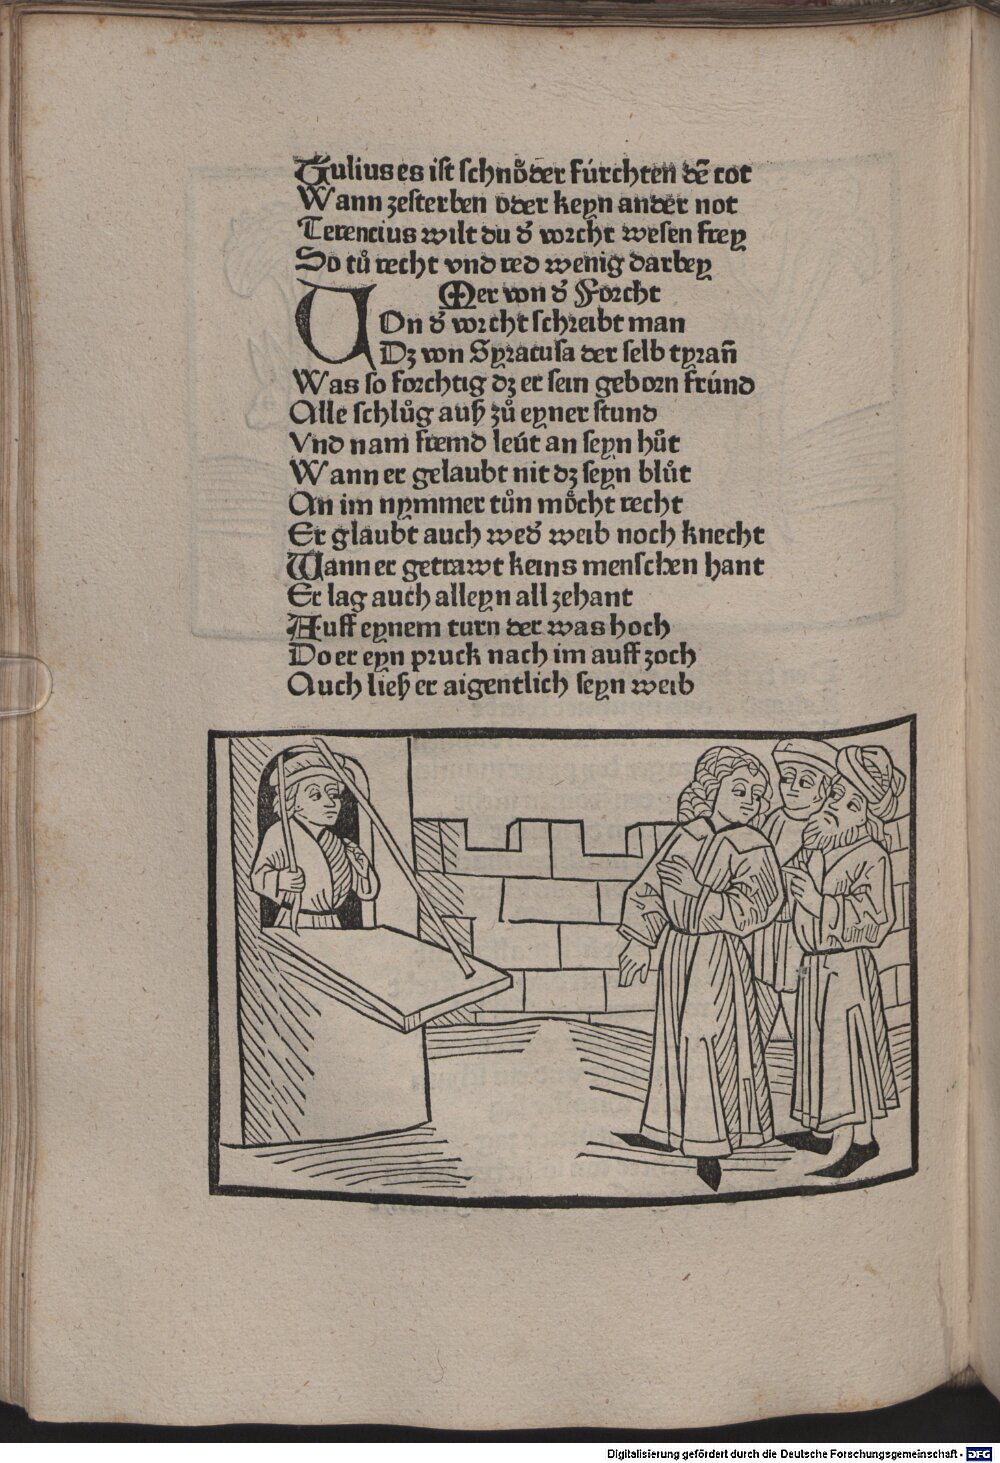 Tulius es ist schnoͤder fúrchten dē tot
Wann zesterben oder keyn ander not
Terencius wilt du d̕ vorcht wesen frey
So tuͦ recht vnd red wenig darbey
Mer von d̕ Forcht
VOn d̕ vorcht schreibt man
Dz von Syracusa der selb tyrañ
Was so forchtig dz er sein geborn frúnd
Alle schluͦg auß zuͦ eyner stund
Vnd nam fremd leút an seyn huͦt
Wann er gelaubt nit dz seyn bluͦt
An im nymmer tuͦn moͤcht recht
Er glaubt auch wed̕ weib noch knecht
Wann er getrawt keins menschen hant
Er lag auch alleyn all zehant
Auff eynem turn der was hoch
Do er eyn pruck nach im auff zoch
Auch ließ er aigentlich seyn weib
Digitalisierung gefördert durch die Deutsche Forschungsgemeinschaft - DFG